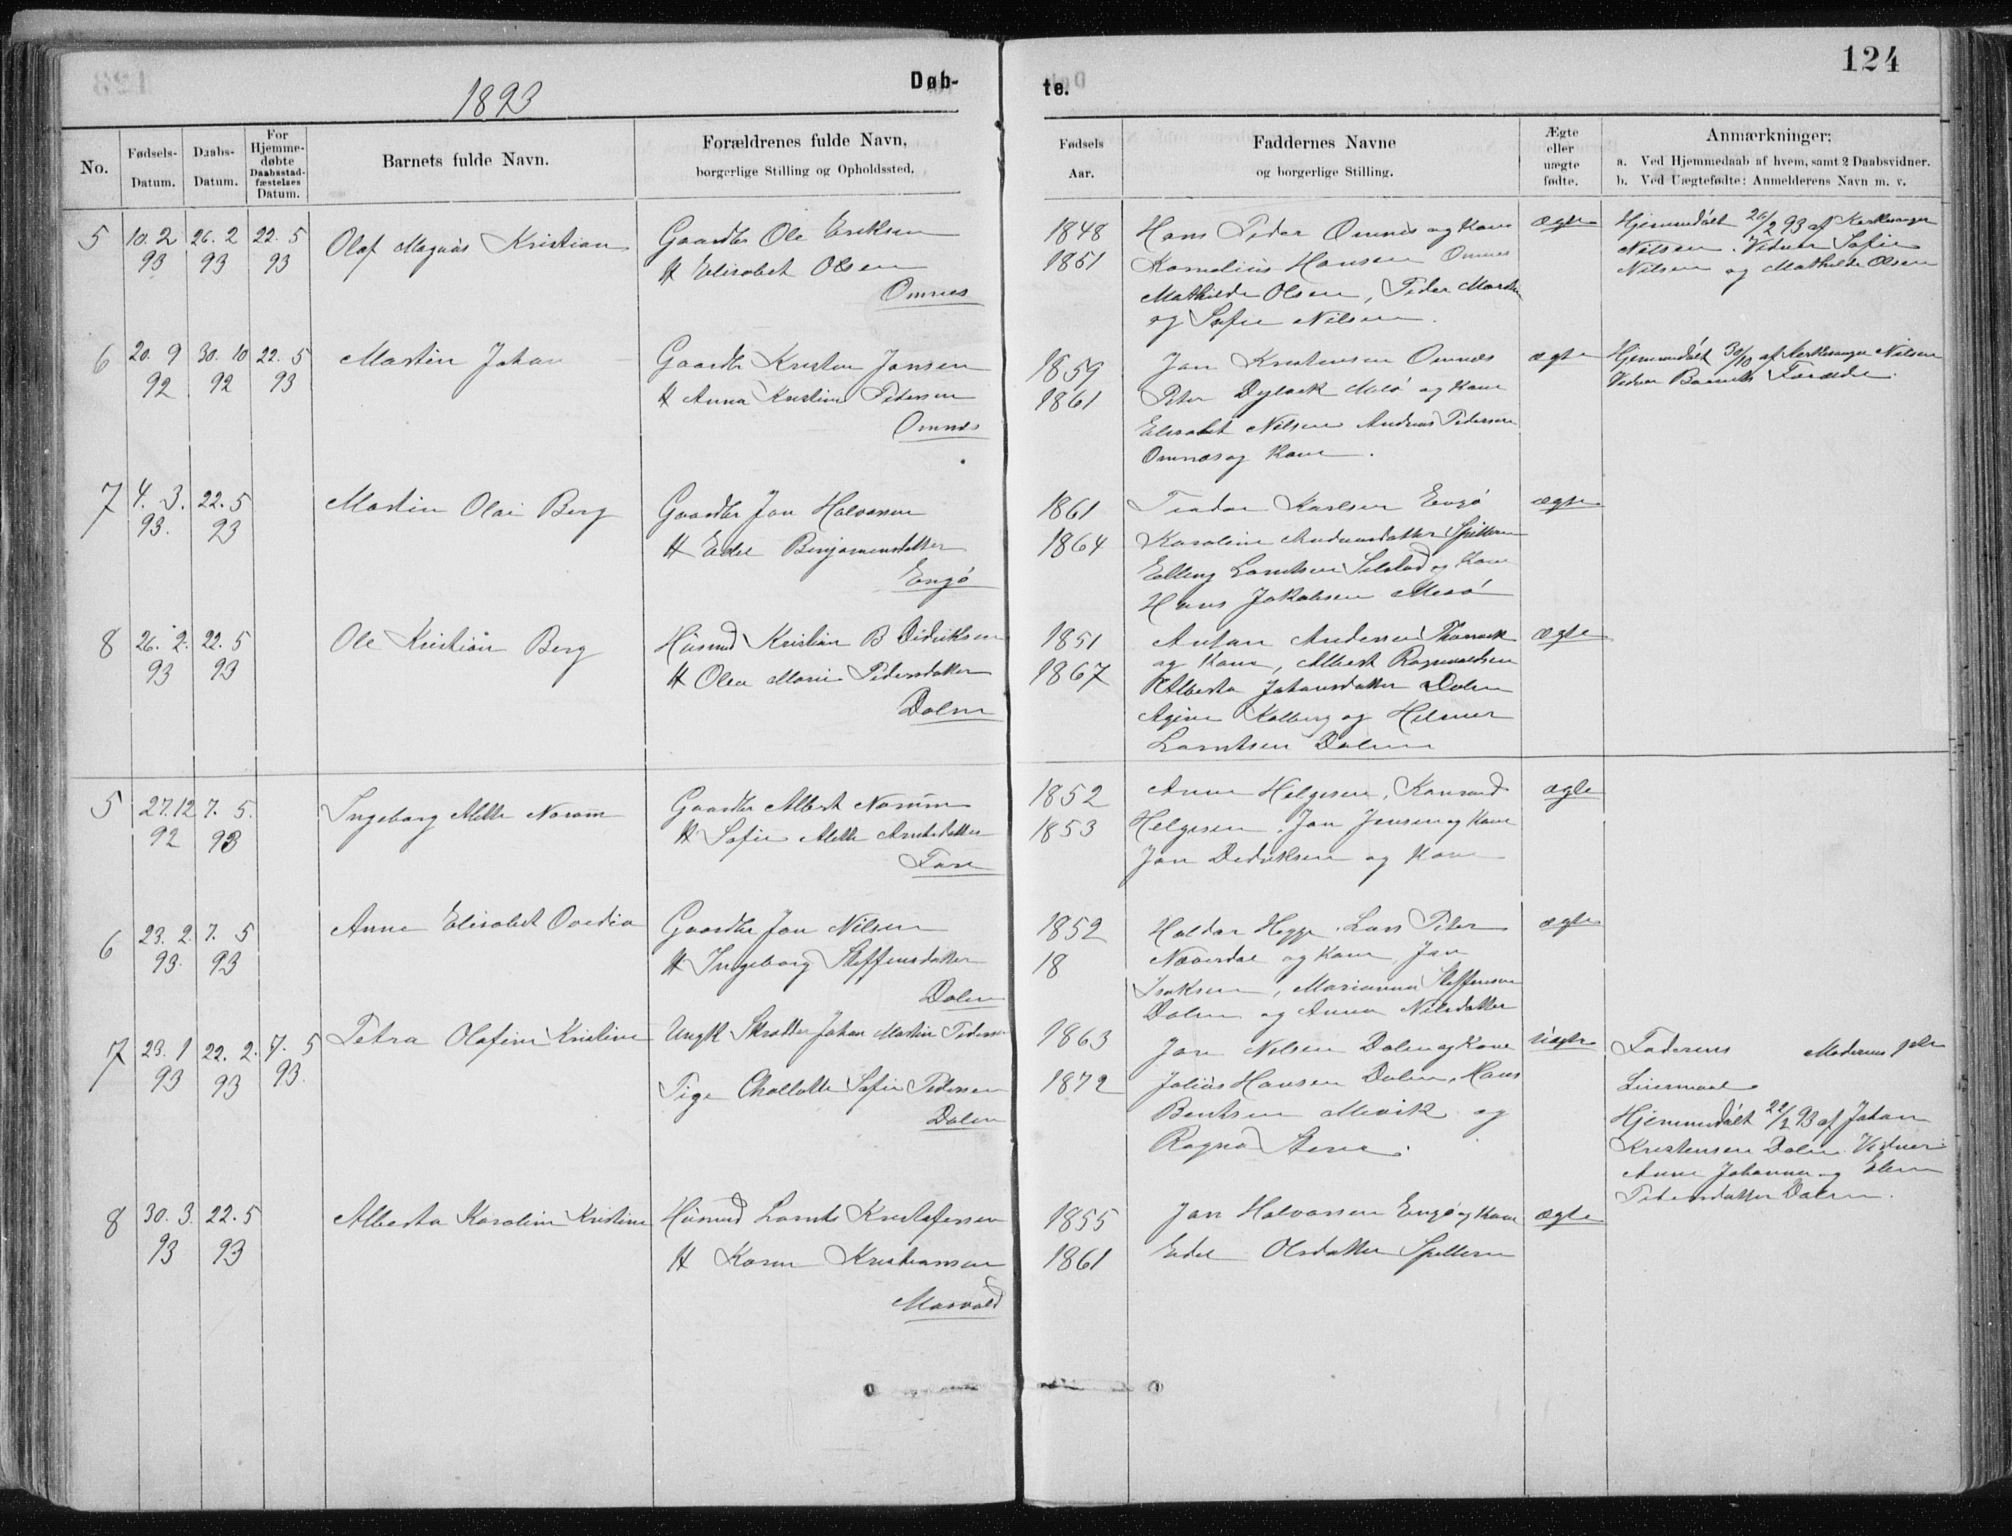 124
1893
Døb-
te.
No.
Fødsels-
Datum.
Daabs-
Datum.
For
Hjemme-
døbte
Daabsstad-
fæstelses
Datum.
Barnets fulde Navn.
Forældrenes fulde Navn,
borgerlige Stilling og Opholdssted.
Fødsels
Aar.
Faddernes Navne
og borgerlige Stilling.
Ægte
eller
uægte
fødte.
Anmærkninger:
a. Ved Hjemmedaab af hvem, samt 2 Daabsvidner.
b. Ved Uægtefødte: Anmelderens Navn m. v.
5 10. 2 26. 2 22. 5
93 93 93
Olaf Magnus Kristian
Gaardbr Ole Eriksen
H Elisabet Olsen
Omnes
1848
1851
Hans Peder Omnes og Kone
Kornelius Hansen Omnes
Mathilde Olsen, Peder Martin
og Sofie Nilsen.
ægte
Hjemmedøbt 26/2 93 af Kirkesanger
Nilsen. Vidner Sofie
Nilsen og Mathilde Olsen
6 20. 9 30. 10 22. 5
92 92 93
Martin Johan
Gaardbr Kristen Jansen
H Anna Kristine Pedersen
Omnes
1859
1861
Jan Kristensen Omnes
Peter Mesø og Kone
Elisabet Nilsen Andreas Pedersen
Omnes og Kone.
ægte
Hjemmedøbt 30/10 af Kirkesanger Nilsen
Vidner Barnets Forældre.
7 4. 3. 22. 5
93. 93
Martin Olai Berg
Gaardbr Jan Halvorsen
H Edel Benjaminsdatter
Engø
1861
1864
Teodor Karlsen Engø
Karoline Andreasdatter Spilderen
Elling Lorntsen Selstad og Kone
Hans Jakobsen Mesø
ægte
8 26. 2. 22. 5
93 93
Ole Kristian Berg
Husmd Kristian B Didriksen
H Olea Marie Pedersdatter
Dalen
1851
1867
Anton Andersen
og Kone, Albert Ragnvaldsen
Alberta Johansdatter Dalen
Kolberg og Hilmer
Lorntsen Dalen
ægte
5 27.12 7. 5.
92 93
Ingeborg Alette Norum
Gaardbr Albert Norum
H Sofie Alette Arntsdatter
1852
1853
Anne Helgesen, Konrad
Helgesen, Jan Jensen og Kone
Jan Didriksen og Kone
ægte
6 23. 2. 7. 5
93. 93
Anne Elisabet Ovedia
Gaardbr Jan Nilsen
H Ingeborg Steffensdatter
Dalen
1852
18
Haldor Hegge, Lars Peter
Næverdal og Kone, Jan
Isaksen, Marianna Steffensen
Dalen og Anna Nilsdatter
ægte
7 23. 1 22. 2. 7. 5
93 93 93.
Petra Olafine Kristine
Ungk Skrædder Johan Martin Pedersen
Pige Challotte Sofie Pedersen
Dalen
1863
1872
Jan Nilsen Dalen og Kone
Julius Hansen Dalen, Hans
Bentsen Mevik og
Ragna
uægte
Faderens Moderens
Leiermaal
Hjemmedøbt 22/2 93 af Johan
Kristensen Dalen. Vidner:
Anne Johanna og Elen
Pedersdatter Dalen.
8 30. 3. 22. 5
93 93
Alberta Karoline Kristine
Husmd Lornts Kristofersen
H Karen Kristiansen
1855
1861
Jan Halvorsen Engø og Kone
Edel Olsdatter Spilderen
ægte